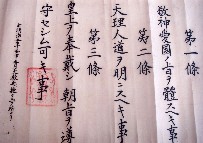 第一條
敬神愛國ノ旨ヲ體スヘキ事
第二條
天理人道ヲ明ニスヘキ事
第三條
皇上ヲ奉戴シ朝旨ヲ遵
守セシム可キ事